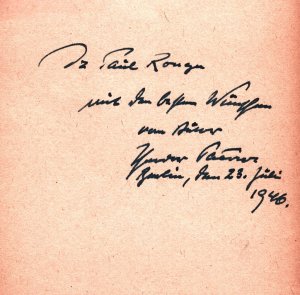 Dr Paul Ronge
mit den besten Wünschen
vom Autor
Berlin, den 23. Juli
1946.